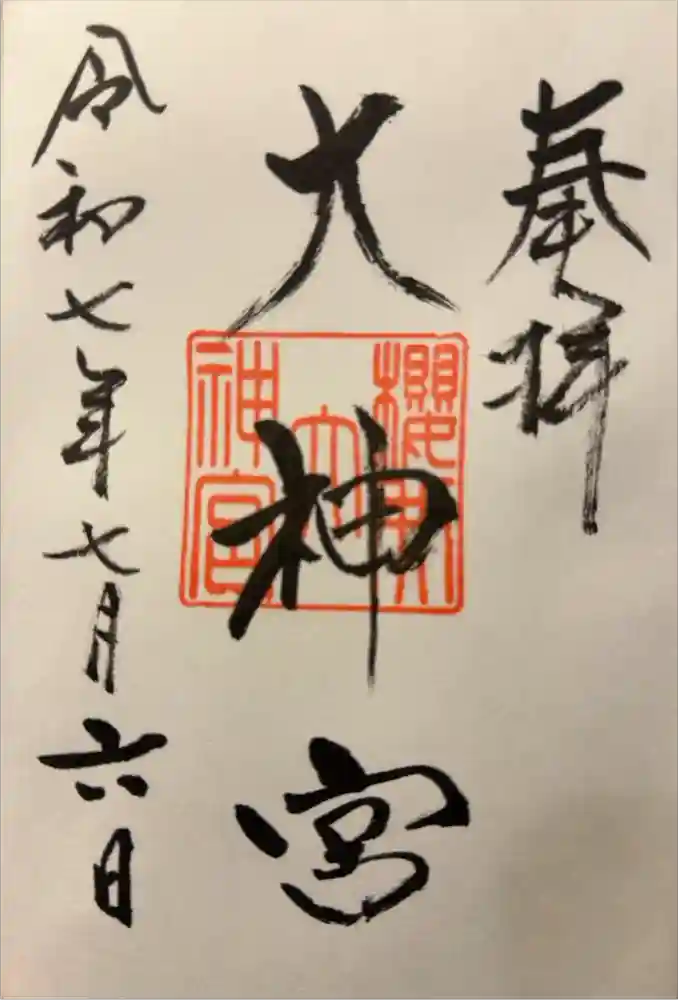 奉拝
大神宮
櫻木
大
神宮
令和七年七月六日